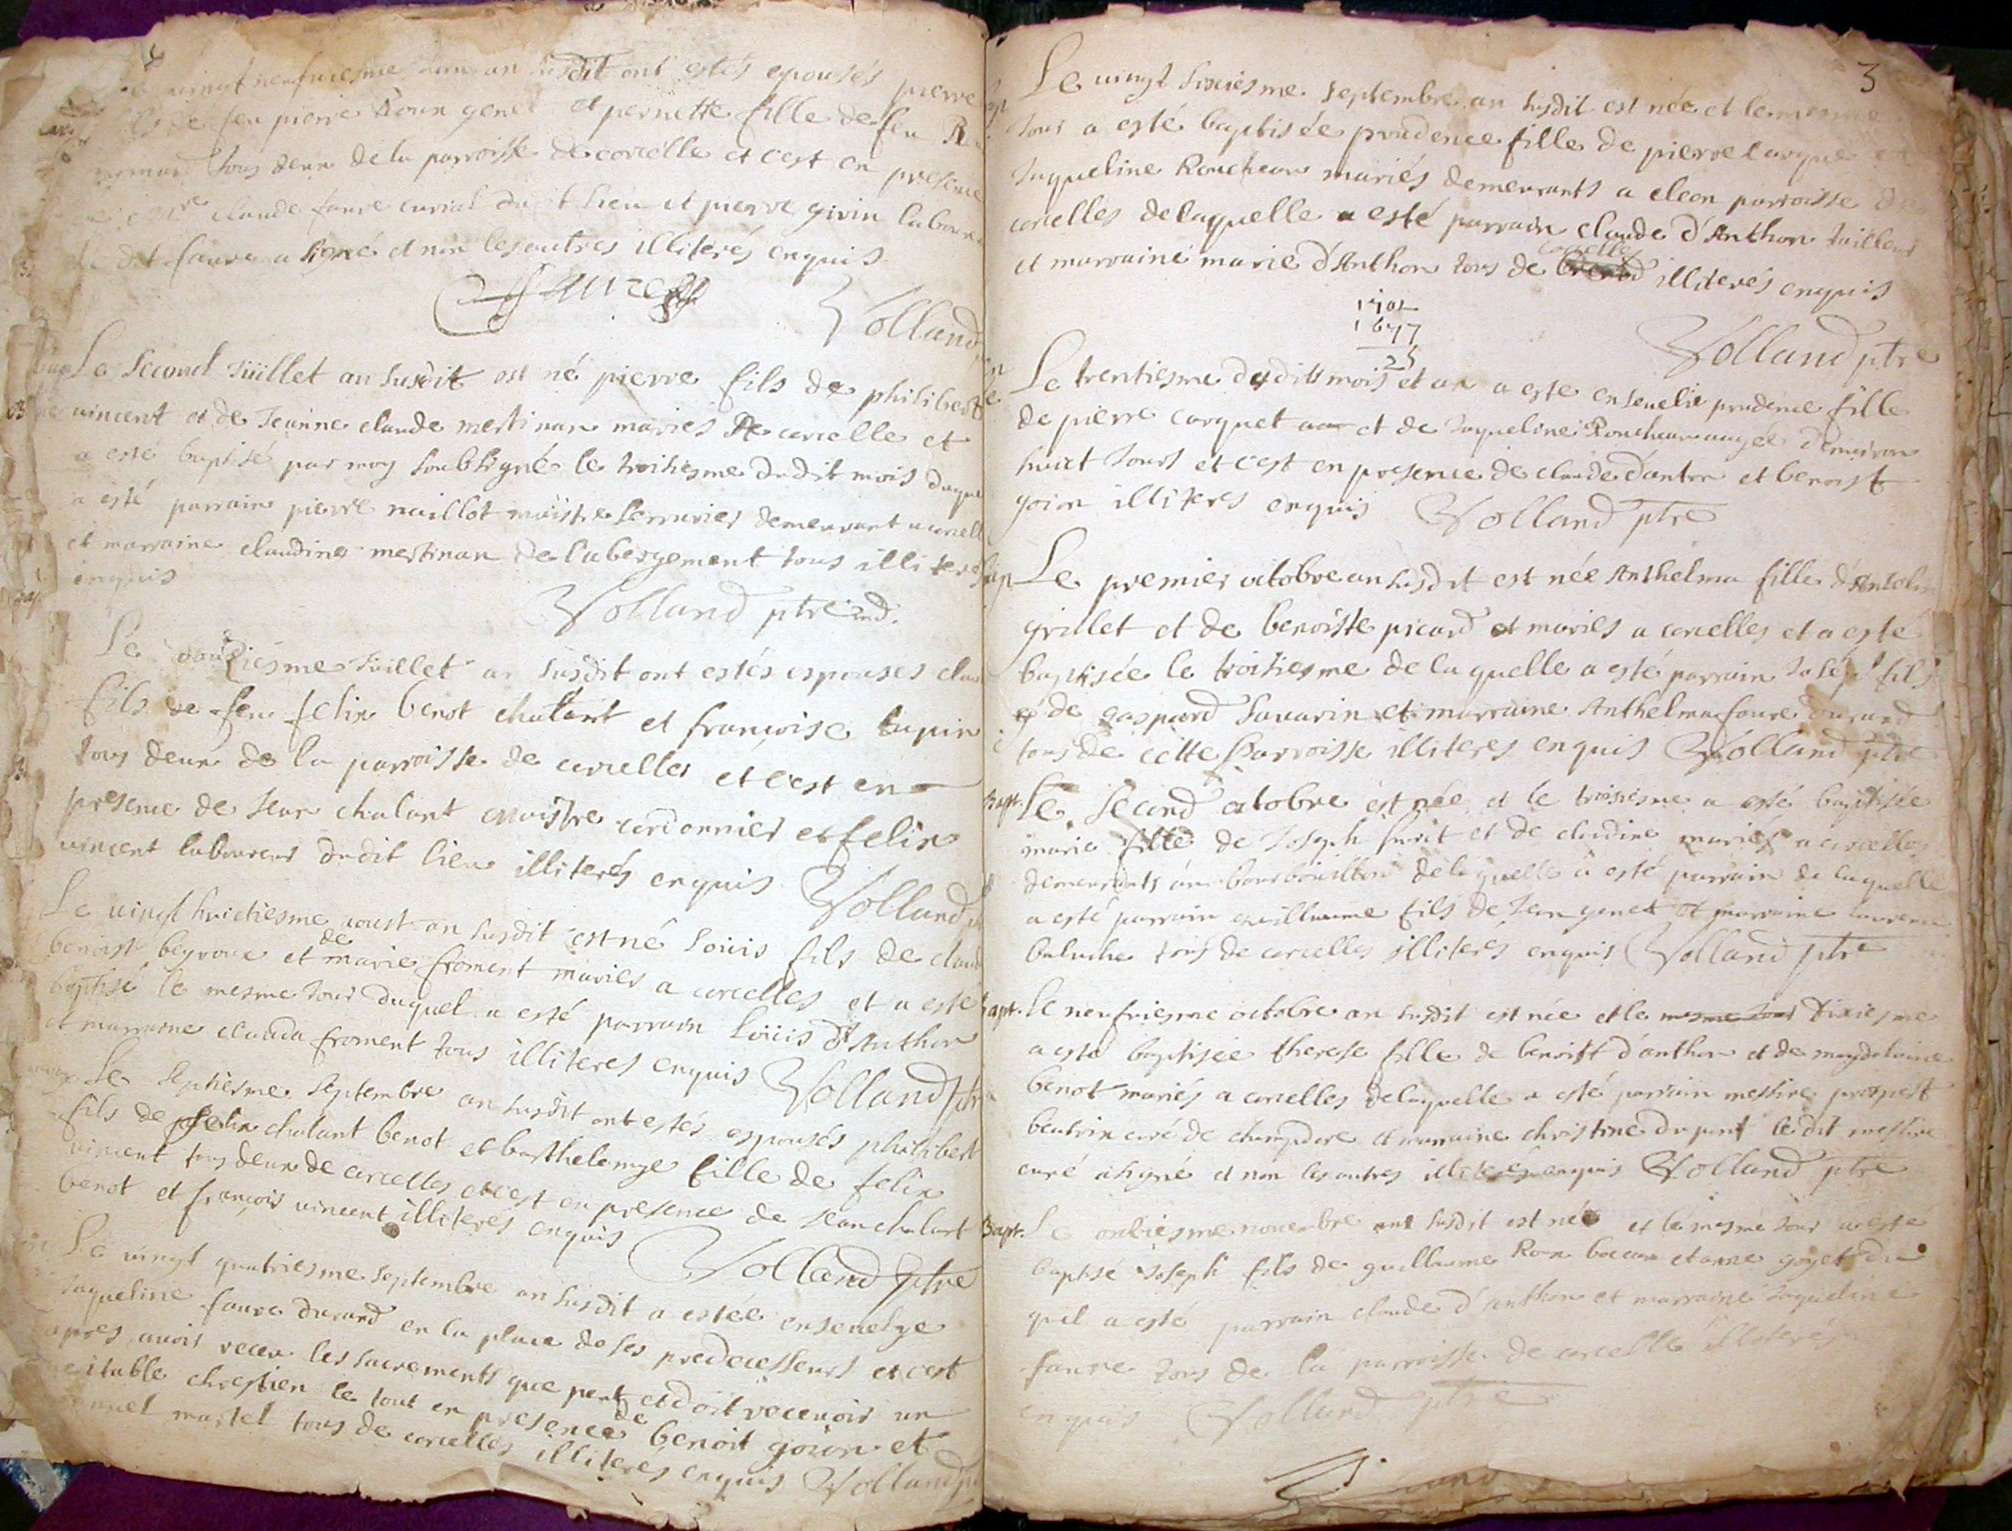 vingt neufviesme an susdit ont estés epousés pierre
de feu pierre Roux genet et pernette fille de feu
tous deux de la parroisse de corcelle et c'est en presence
claude faure curial dudit lieu et pierre givin laboureur
dit faure a signé et non les autres illiterés enquis
Faure
Volland
Le second Juillet an susdit est né pierre fils de philibert
vincent et de Jeanne claude mertinan mariés de corcelle et
a esté baptisé par moy soubsigné le troisiesme dudit mois duquel
a esté parrain pierre naillot maistre serrurier demeurant a corcelle
et marraine claudine mertinan de labergement tous illiteres
enquis
Volland ptre ind.
Le douziesme Juillet an susdit ont estés espouses
fils de feu felix benot chalant et françoise tupin
tous deux de la parroisse de corcelles et c'est en
presence de Jean chalant maistre cordonnier et felix
vincent laboureur dudit lieu illiterés enquis Volland
Le vingt huictiesme aoust an susdit est né Loüis fils de claude
benoist beyroux et de marie froment mariés a corcelles et a esté
baptisé le mesme jour duquel a esté parrain Loüis d'Anthon
et marraine clauda froment tous illiteres enquis Volland ptre
Le septiesme septembre an susdit ont estés espousés philibert
fils de felix chalant benot et barthelemye fille de felix
vincent tous deux de corcelles et c'est en presence de Jean chalant
benot et françois vincent illiterés enquis
Volland ptre
Le vingt quatriesme septembre an susdit a estée ensevelye
Jaqueline faure durand en la place de ses predecesseurs et c'est
apres avoir receu les sacrements que peut et doit recevoir un
veritable chrestien le tout en presence de benoit goion et
martel tous de corcelles illiterés enquis Volland
3
Le vingt sixiesme septembre an susdit est née et le mesme
jour a esté baptisée prudence fille de pierre carquet et
Jaqueline Roucheux mariés demeurants a cleon parroisse de
corcelles de laquelle a esté parrain claude d'Anthon tailleur
et marraine marie d'Anthon tous de corcelle illiterés enquis
1702
1677
25
Volland ptre
Le trentiesme dudit mois et an a esté ensevelie prudence fille
de pierre carquet et de Jaqueline Roucheux augée d'environ
huict jours et c'est en presence de claude danton et benoist
goion illiteres enquis Volland ptre
Le premier octobre an susdit est née Anthelma fille d'Antelme
grillet et de benoiste picard mariés a corcelles et a esté
baptisée le troisiesme de laquelle a esté parrain Joseph fils
de gaspard savarin et marraine Anthelma faure durand
tous de cette parroisse illiteres enquis Volland ptre
Bapt. Le second octobre est née et le troisiesme a esté baptisée
marie fille de Joseph et de claudine mariés a corcelles
demeurants de laquelle a esté parrain de laquelle
a esté parrain guillaume fils de Jean genet et marraine
baluche tous de corcelles illiterés enquis Volland ptre
bapt. Le neufviesme octobre an susdit est née et le mesme jour dixiesme
a esté baptisée therese fille de benoist d'anthon et de magdelaine
benot mariés a corcelles de laquelle a esté parrain messire prospert
beutrix curé de champdore et marraine christine dupont ledit messire
curé a signé et non les autres illiterés enquis Volland ptre
Bapt. Le onziesme novembre an susdit est né et le mesme jour a esté
baptisé Joseph fils de guillaume Roux et anne goyet du
quel a esté parrain claude d'Anthon et marraine Jaqueline
faure tous de la parroisse de corcelle illiterés
enquis Volland ptre